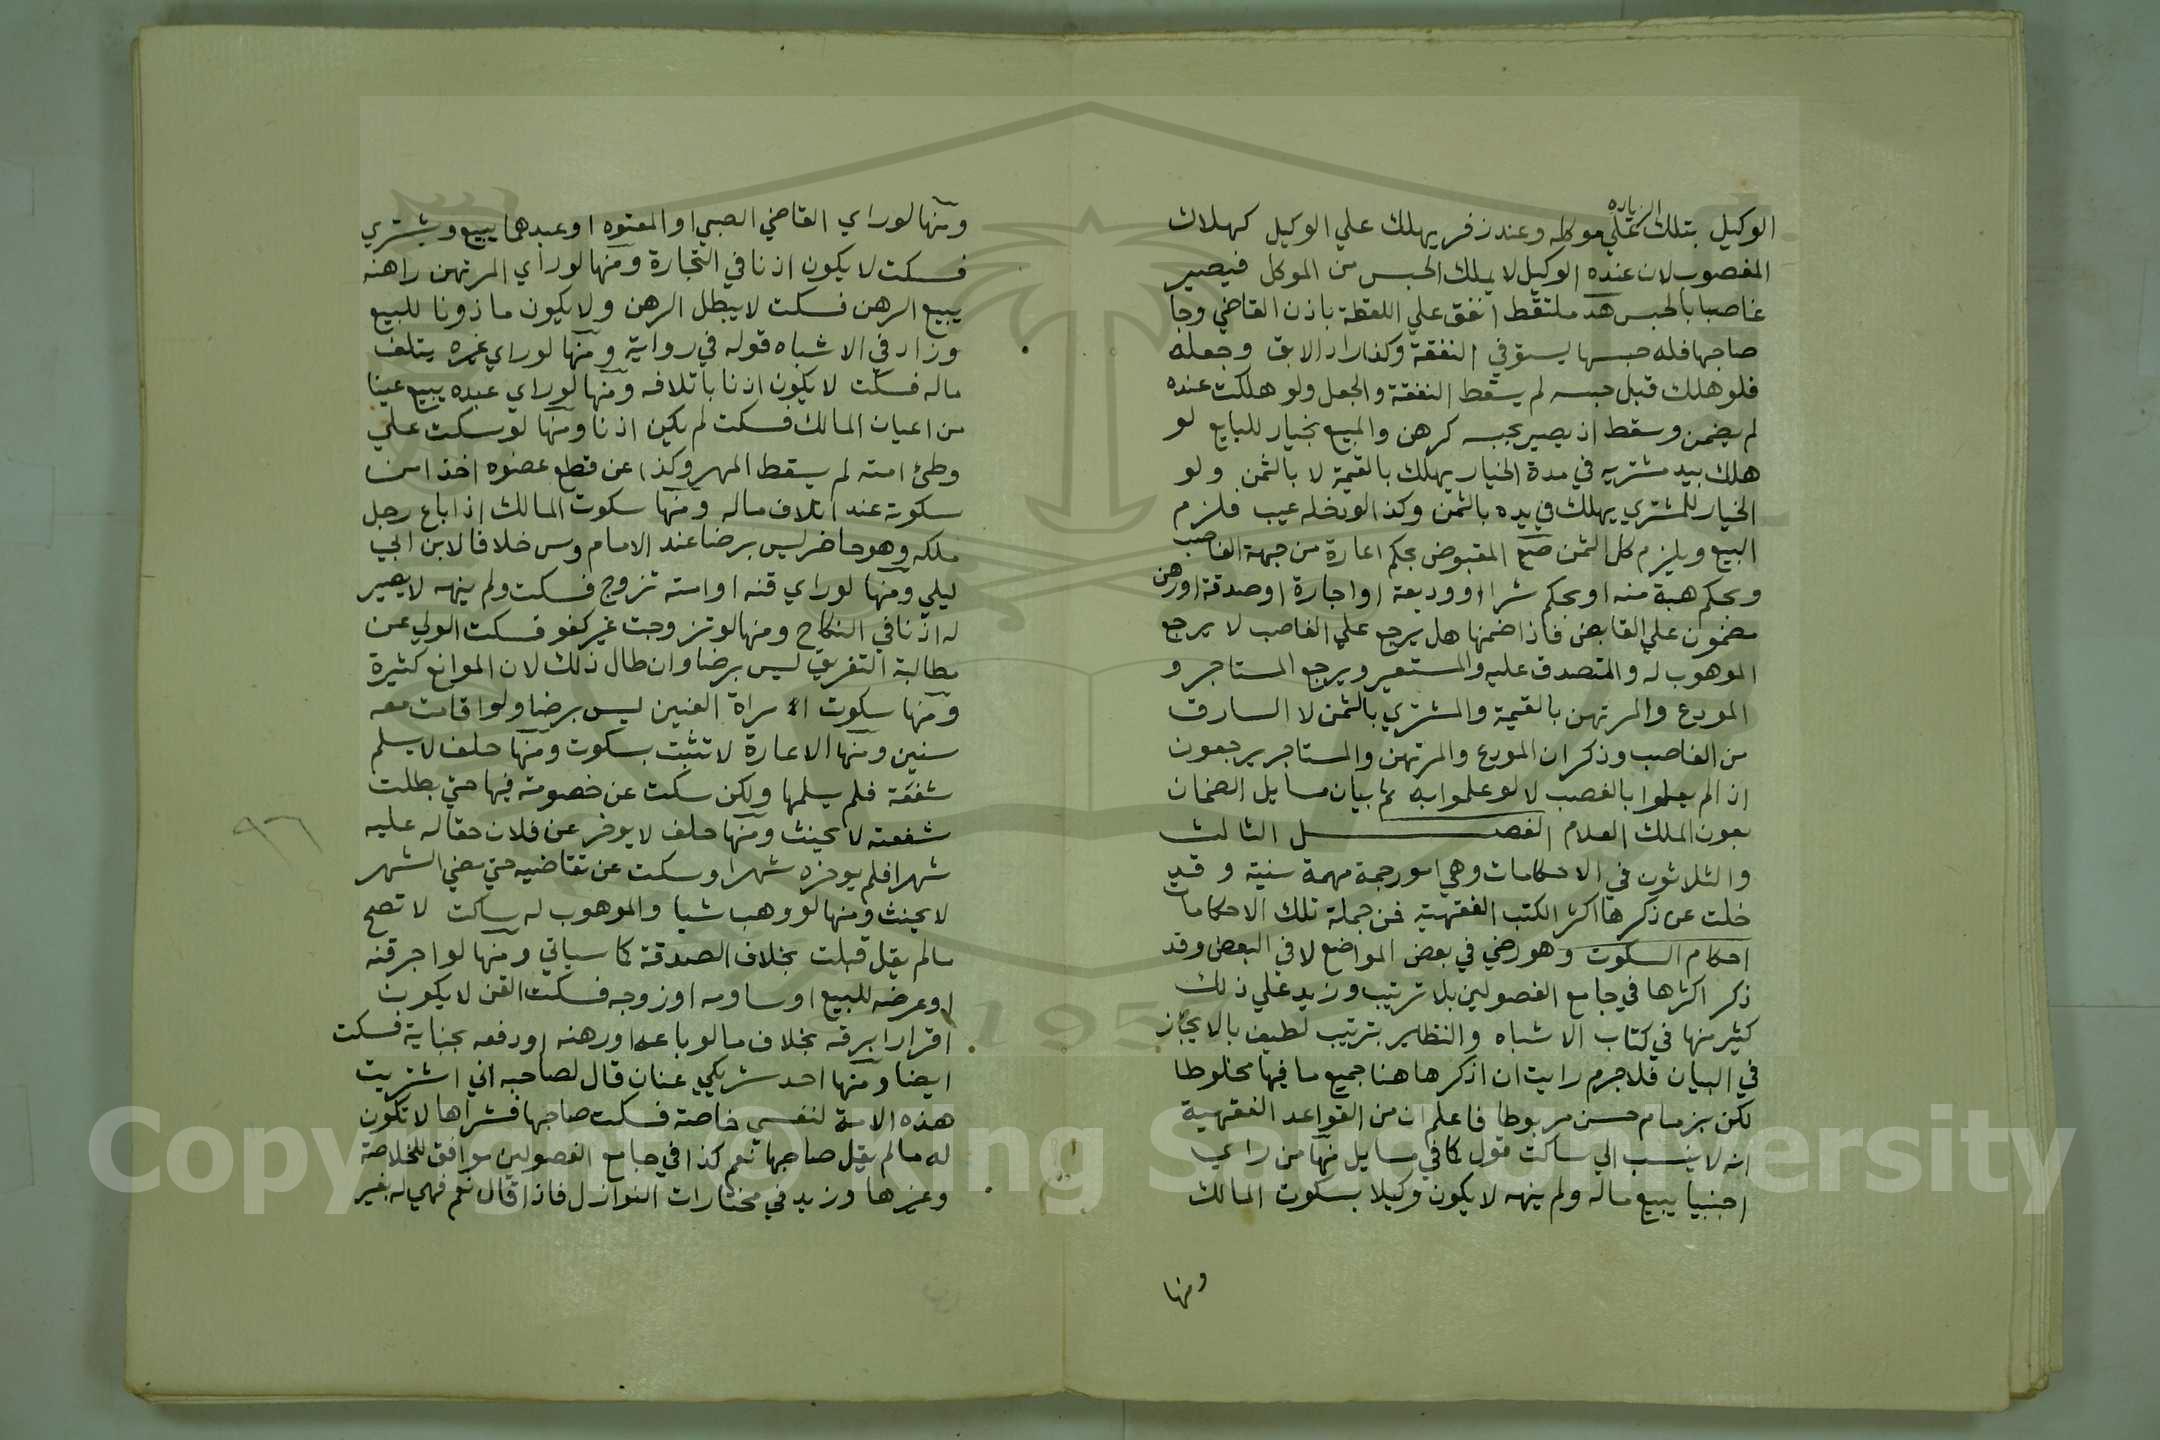 الزياده
الوكيل بتلك علي موكله وعند زفر يهلك علي الوكيل كهلاك
المغصوب لان عنده الوكيل لا يملك الحبس من الموكل فيصير
غاصبا بالحبس هد ملتقط انفق علي اللقطة باذن القاضي وجا
صاحبها فله حبسها يستوفي النفقة وكذا راد الابق وجعله
فلو هلك قبل حبسه لم يسقط النفقة والجعل ولو هلكت عنده
لم يضمن وسقط اذ يصير بحبسه كرهن والمبيع بخيار للبايع لو
هلك بيد مشتريه في مدة الخيار يهلك بالقيمة لا بالثمن ولو
الخيار للمشتري يهلك في يده بالثمن وكذا لو دخله عيب فلزم
البيع ويلزم كل الثمن صع المقبوض بحكم اعارة من جهة الغاصب
وبحكم هبة منه او بحكم شرا او وديعة او اجارة او صدقة او رهن
مضمون علي القابض فاذا ضمنها هل يرجع علي الغاصب لا يرجع
الموهوب له والمتصدق عليه والمستعير ويرجع المستاجر و
المودع والمرتهن بالقيمة والمشتري بالثمن لا السارق
من الغاصب وذكر ان المودع والمرتهن والمستاجر يرجعون
اذ الم يعلموا بالغصب لا لو علموا به تم بيان مسايل الضمان
بعون الملك العلام الفصل الثالث
والثلاثون في الاحكامات وهي امور جمة مهمة سنية وقد
خلت عن ذكرها اكثر الكتب الفقهية فمن جملة تلك الاحكامات
احكام السكوت وهو رضي في بعض المواضع لا في البعض وقد
ذكر اكثرها في جامع الفصولين بلا ترتيب وزيد علي ذلك
كثير منها في كتاب الاشباه والنظاير بترتيب لطيف بالايجاز
في البيان فلا جرم رايت ان اذكرها هنا جميع ما فيها مخلوطا
لكن بزمام حسن مربوطا فاعلم ان من القواعد الفقهية
انه لا ينسب الي ساكت قول كما في مسايل منها من راي
اجنبيا يبيع ماله ولم ينهه لا يكون وكيلا بسكوت المالك
ومنها
ومنها لو راي القاضي الصبي او المعتوه او عبدهما يبيع ويشتري
فسكت لا يكون اذنا في التجارة ومنها لو راي المرتهن راهنه
يبيع الرهن فسكت لا يبطل الرهن ولا يكون ماذونا للبيع
وزاد في الاشباه قوله في رواية ومنها لو راي غيره يتلف
ماله فسكت لا يكون اذنا باتلافه ومنها لو راي عبده يبيع عينا
من اعيان المالك فسكت لم يكن اذنا ومنها لو سكت علي
وطئ امته لم يسقط المهر وكذا عن قطع عضوه اخذا من
سكوته عند اتلاف ماله ومنها سكوت المالك اذا باع رجل
ملكه وهو حاضر ليس برضا عند الامام وس خلافا لابن ابي
ليلي ومنها لو راي قنه او امته تزوج فسكت ولم ينهه لا يصير
له اذنا في النكاح ومنها لو تزوجت غير كفو فسكت الولي عن
مطالبة التفريق ليس برضا وان طال ذلك لان الموانع كثيرة
ومنها سكوت امراة العنين ليس برضا ولو اقامت معه
سنين ومنها الاعارة لا تثبت بسكوت ومنها حلف لا يسلم
شفعة فلم يسلمها ولكن سكت عن خصومة فيها حتي بطلت
شفعته لا يحنث ومنها حلف لا يوخر عن فلان حقا له عليه
شهرا فلم يوخره شهرا وسكت عن تقاضيه حتي مضي الشهر
لا يحنث ومنها لو وهب شيا والموهوب له ساكت لا تصح
ما لم يقل قبلت بخلاف الصدقة كما سياتي ومنها لو اجر قنه
او عرضه للبيع او ساومه او زوجه فسكت القن لا يكون
اقرارا برقه بخلاف ما لو باعه او رهنه او دفعه بجناية فسكت
ايضا ومنها احد شريكي عنان قال لصاحبه اني اشتريت
هذه الامة لنفسي خاصة فسكت صاحبها فشراها لا تكون
له ما لم يقل صاحبها نعم كذا في جامع الفصولين موافق للخلاصة
وغيرها وزيد في مختارات النوازل فاذا قال نعم فهي له بغير
٩٦
Copyright © King Saud University
1957